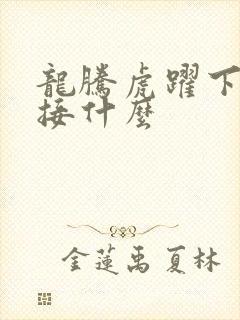 龍騰虎躍下
接什麼
金蓮禹夏林